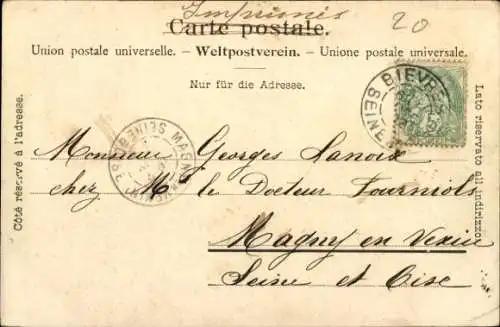 Imprimés
Carte postale.
20
Union postale universelle. – Weltpostverein. – Unione postale universale.
Nur für die Adresse.
Côté réservé à l'adresse.
Lato riservato all indirizzo.
BIEVRES
SEINE
SEINE MAGNY
Monsieur Georges Lanoix
chez Mr le Docteur Fourniols
Magny en Vexin
Seine et Oise